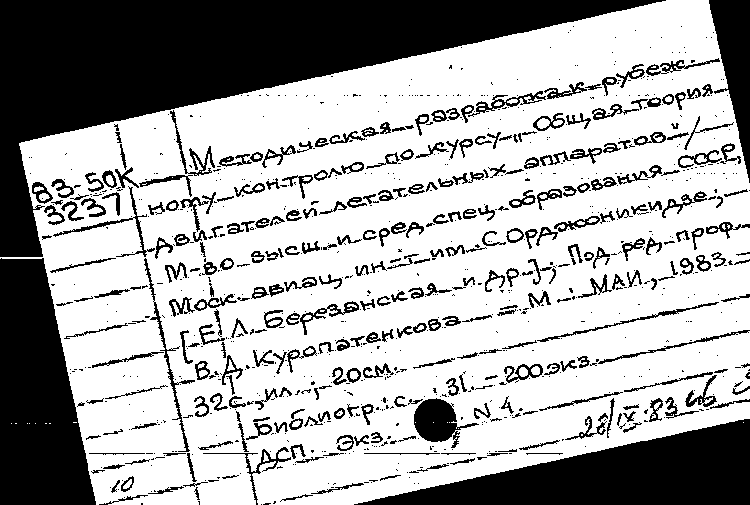 83-50К
3237
Методическая разработка к рубеж-
ному контролю по курсу „Общая теория
двигателей летательных аппаратов"/
М-во высш. и сред. спец. образования СССР,
Моск. авиац. ин-т им. С. Орджоникидзе;
[Е. Л. Березанская и др.]; Под ред. проф.
В. Д. Куропатенкова = М.: МАИ, 1983. –
32 с., ил.; 20 см.
Библиогр.: с. 31. – 200 экз.
ДСП. Экз. N 1.
28/IX-83
10